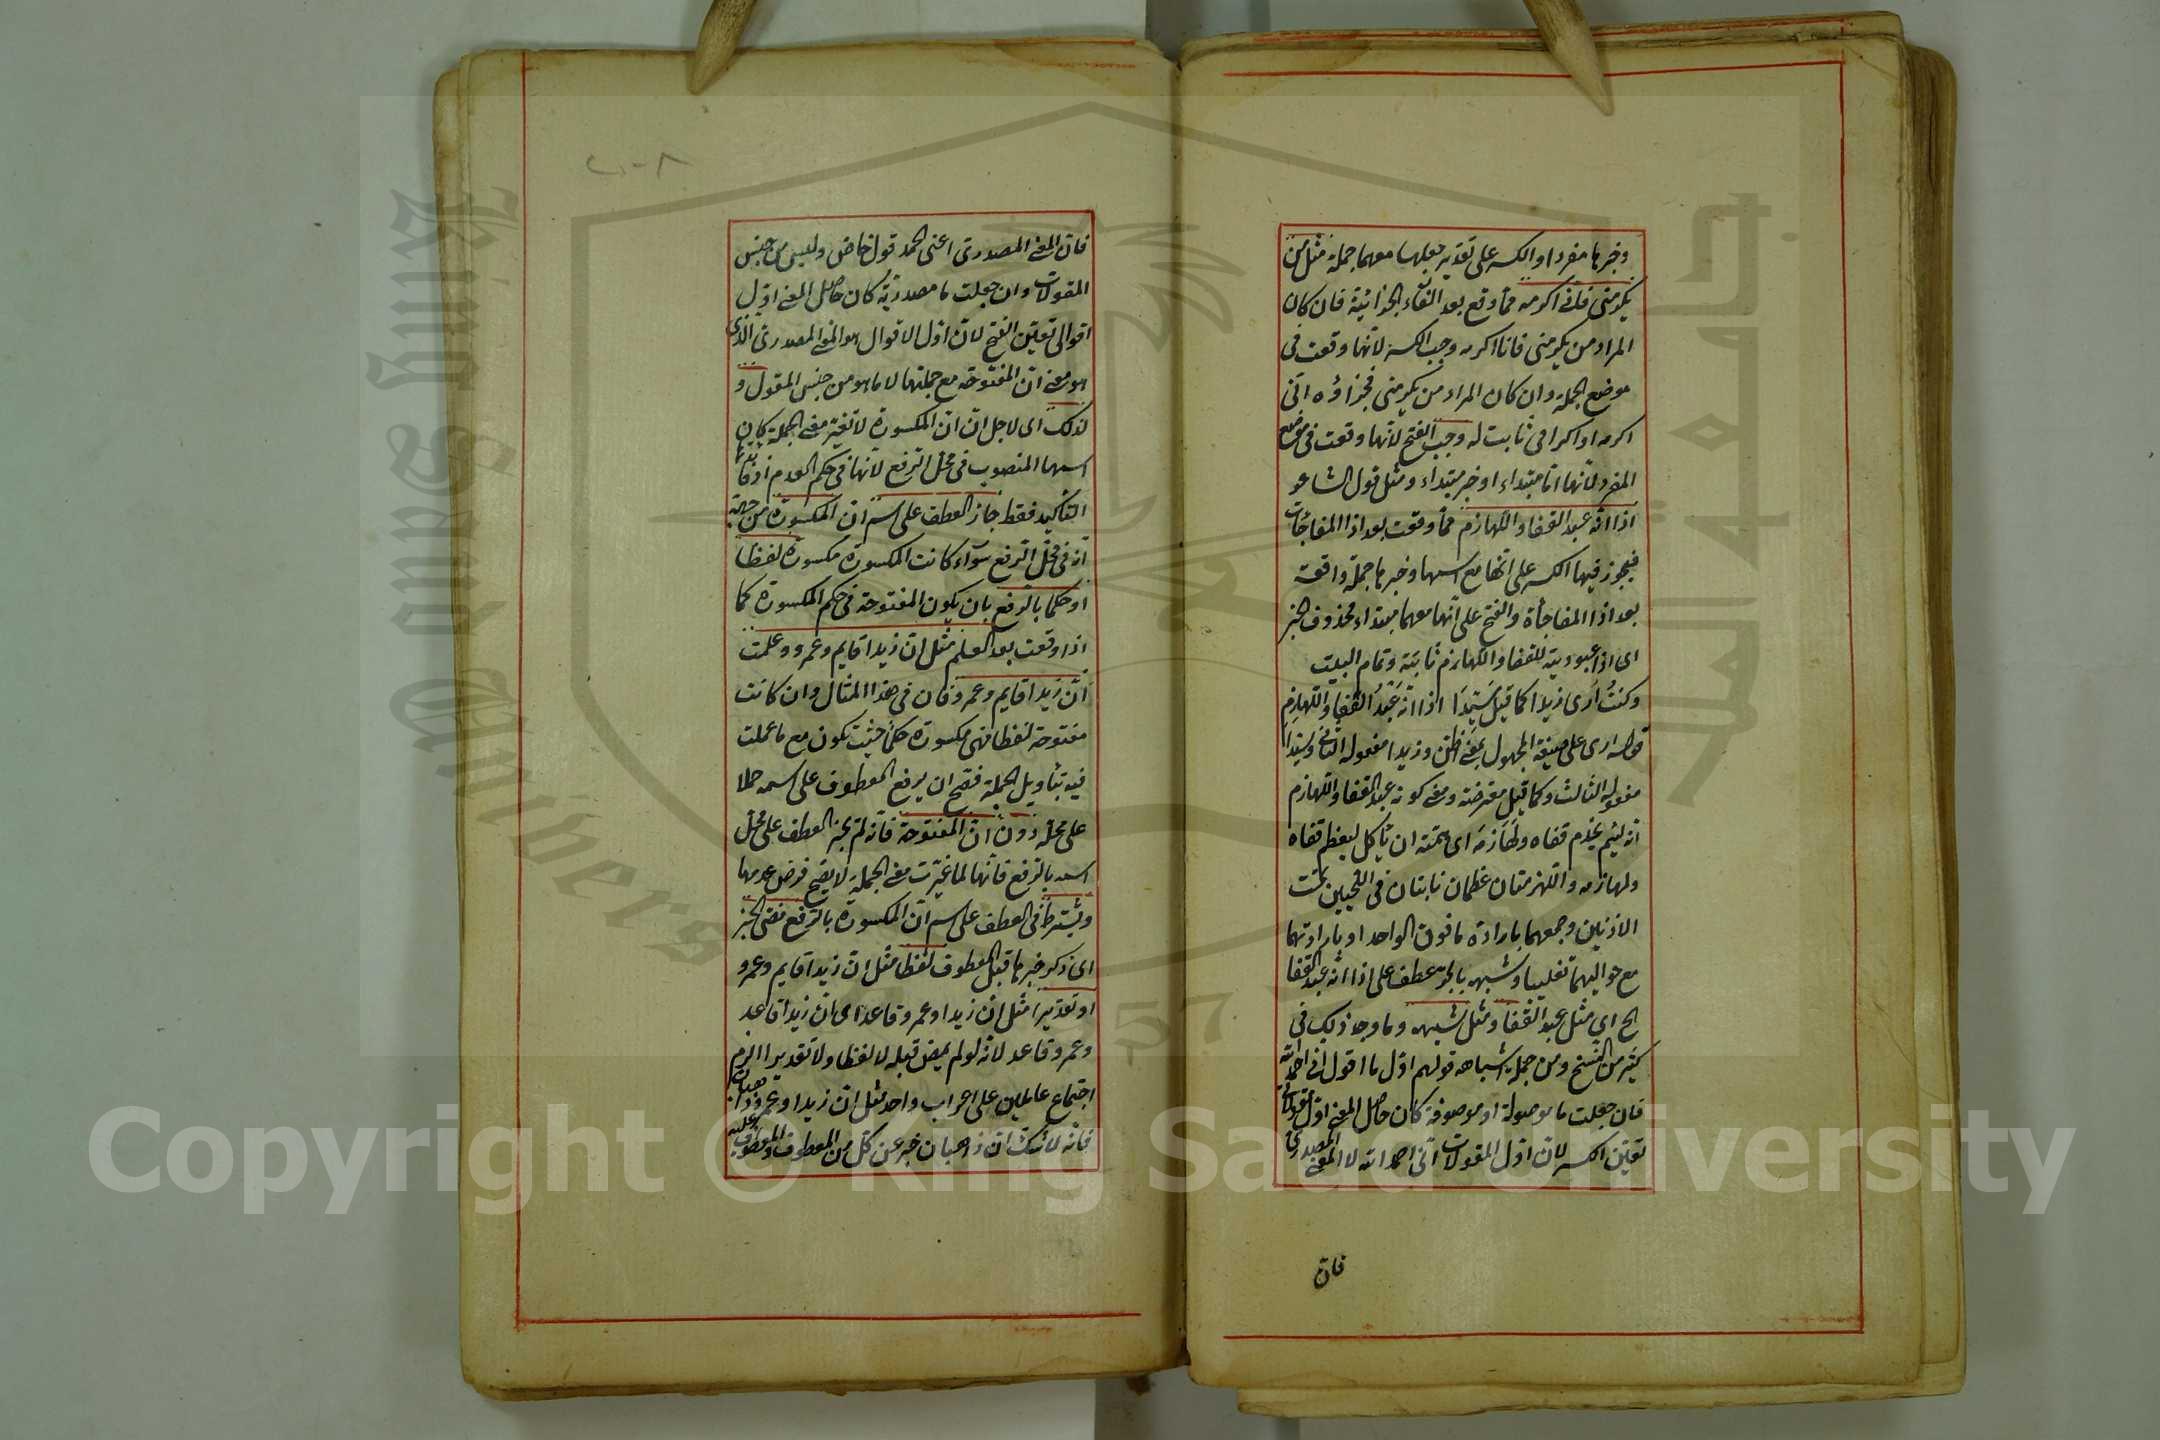 وخبرها مفردا والكسر على تقدير جعلها معهما جملة مثل من
يكرمنى فانى اكرمه مما وقع بعد الفآء الجزائية فان كان
المراد من يكرمنى فانا اكرمه وجب الكسر لانها وقعت فى
موضع الجملة وان كان المراد من يكرمنى فجزاؤه انى
اكرمه او اكرامى ثابت له وجب الفتح لانها وقعت فى موضع
المفرد لانها اما مبتداء او خبر مبتداء ومثل قول الشاعر
اذا انه عبد القفا واللهازم مما وقعت بعد اذا المفاجات
فيجوز فيها الكسر على انها مع اسمها وخبرها جملة واقعة
بعد اذا المفاجأة والفتح على انها معهما مبتداء محذوف الخبر
اى اذا عبوديته للقفا واللهازم ثابتة وتمام البيت
وكنتُ اُرى زيدا كما قيل سَيِّدًا اذا انه عَبْدُ القفا واللهازِمِ
قوله ارى على صيغة المجهول بمعنى اظن وزيدا مفعوله الثانى وسيدا
مفعوله الثالث وكما قيل معترضة ومعنى كونه عبد القفا واللهازم
انه لئيم يخدم قفاه ولهازمه اى همته ان ياكل ليعظم قفاه
ولهازمه واللهزمتان عظمان نابتان فى اللحيين تحت
الاذنين وجمعهما بارادة ما فوق الواحد او بارادتهما
مع حواليهما تغليبا وشبهه بالجر عطف على اذا انه عبد القفا
الخ اى مثل عبد القفا ومثل شبهه وما وجد ذلك فى
كثير من النسخ ومن جملة اشباهه قولهم اول ما اقول انى احمد الله
فان جعلت ما موصولة او موصوفة كان حاصل المعنى اول مقولاتى
تعين الكسر لان اول المقولات انى احمد الله لا المعنى المصدرى
فان
فان المعنى المصدرى اعنى الحمد قول خاص وليس من جنس
المقولات وان جعلت ما مصدرية كان حاصل المعنى اول
اقوالى تعين الفتح لان اول الاقوال هو المعنى المصدرى الذى
هو معنى ان المفتوحة مع جملتها لا ما هو من جنس المقول و
لذلك اى لاجل ان ان المكسورة لا تغير معنى الجملة كان
اسمها المنصوب فى محل الرفع لانها فى حكم العدم اذ فائدتها
التاكيد فقط جاز العطف على اسم ان المكسورة من جهة
انه فى محل الرفع سوآء كانت المكسورة مكسورة لفظا
او حكما بالرفع بان يكون المفتوحة فى حكم المكسورة كما
اذا وقعت بعد العلم مثل ان زيدا قايم وعمرو وعلمت
ان زيدا قايم وعمرو فان فى هذا المثال وان كانت
مفتوحة لفظا فهى مكسورة حكما حيث تكون مع ما عملت
فيه بتاويل الجملة فصح ان يرفع المعطوف على اسمه حملا
على محله دون ان المفتوحة فانه لم يجز العطف على محل
اسمه بالرفع فانها لما غيرت معنى الجملة لا يصح فرض عدمها
ويشترط فى العطف على اسم ان المكسورة بالرفع مضى الخبر
اى ذكر خبرها قبل المعطوف لفظا مثل ان زيدا قايم وعمرو
او تقديرا مثل ان زيدا وعمرو قاعد اى ان زيدا قاعد
وعمرو قاعد لانه لو لم يمض قبله لا لفظا ولا تقديرا لزم
اجتماع عاملين على اعراب واحد مثل ان زيدا وعمرو ذاهبان
فانه لا شك ان ذاهبان خبر عن كل من المعطوف والمعطوف عليه
Copyright © King Saud University
1957